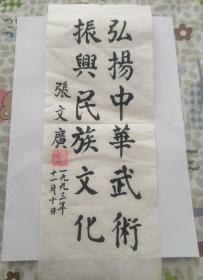 弘揚中華武術
振興民族文化
張文廣
一九九三年
十一月十日